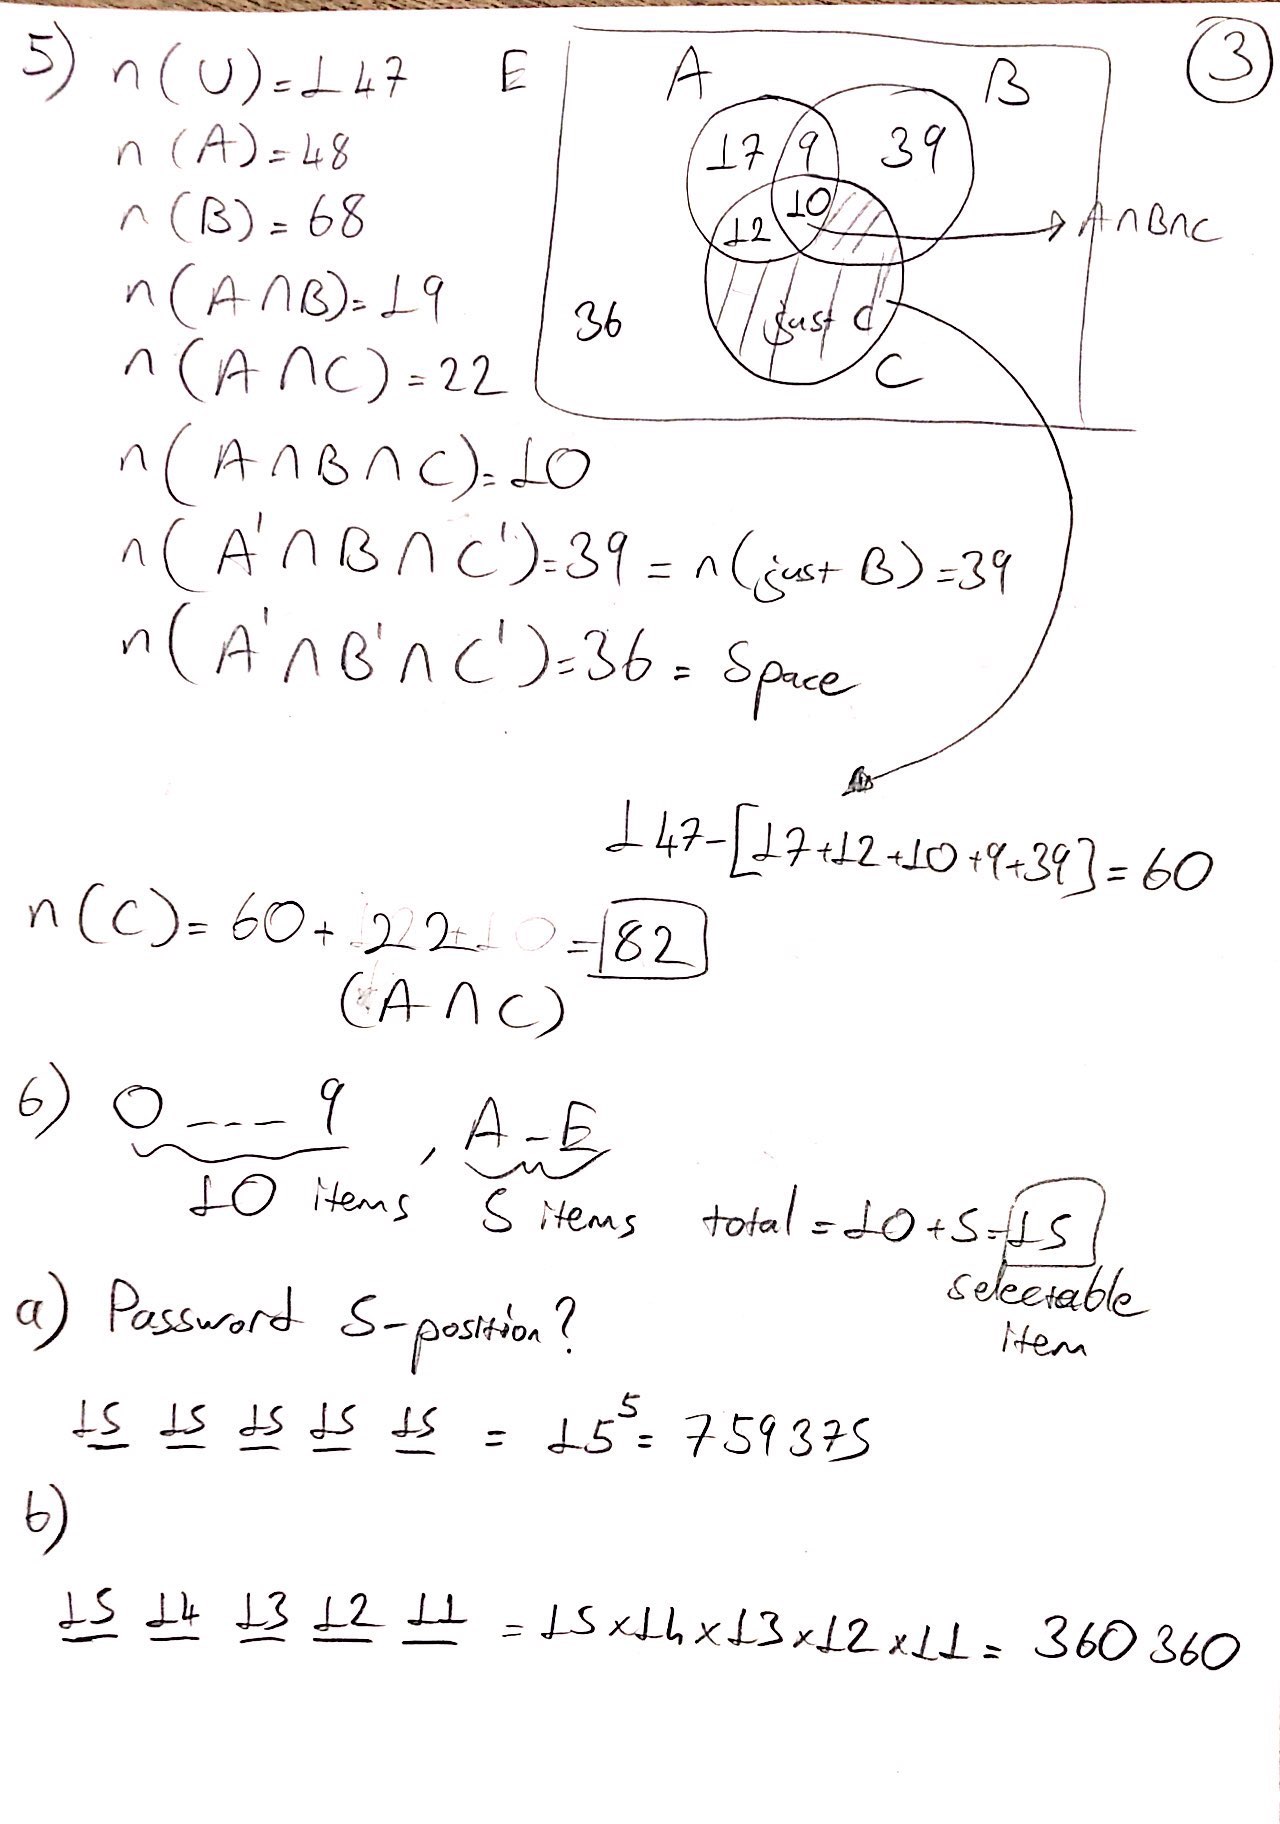 ③
5) n(U)=147
n(A)=48
n(B)=68
n(A∩B)=19
n(A∩C)=22
n(A∩B∩C)=10
n(A'∩B∩C')=39 = n(just B)=39
n(A'∩B'∩C')=36 = Space
E
A
B
17 9 39
10
12
A∩B∩C
36
just C
C
147-[17+12+10+9+39]=60
n(C)= 60+ 22 = 82
(A∩C)
6) 0 --- 9 , A-E
10 items 5 items total = 10+5=15
selectable
item
a) Password 5-position?
15 15 15 15 15 = 15⁵ = 759375
b)
15 14 13 12 11 = 15x14x13x12x11 = 360 360